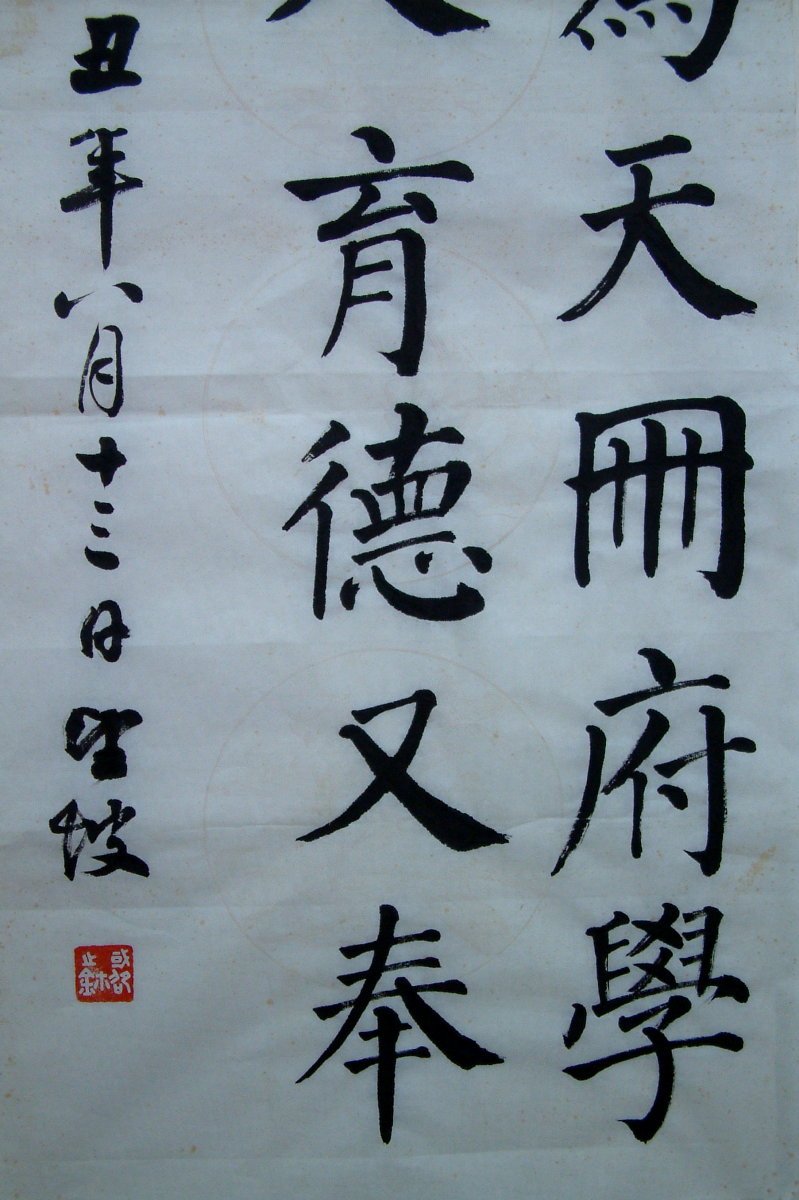 為天冊府學
育德又奉
丑年八月十三日望坡